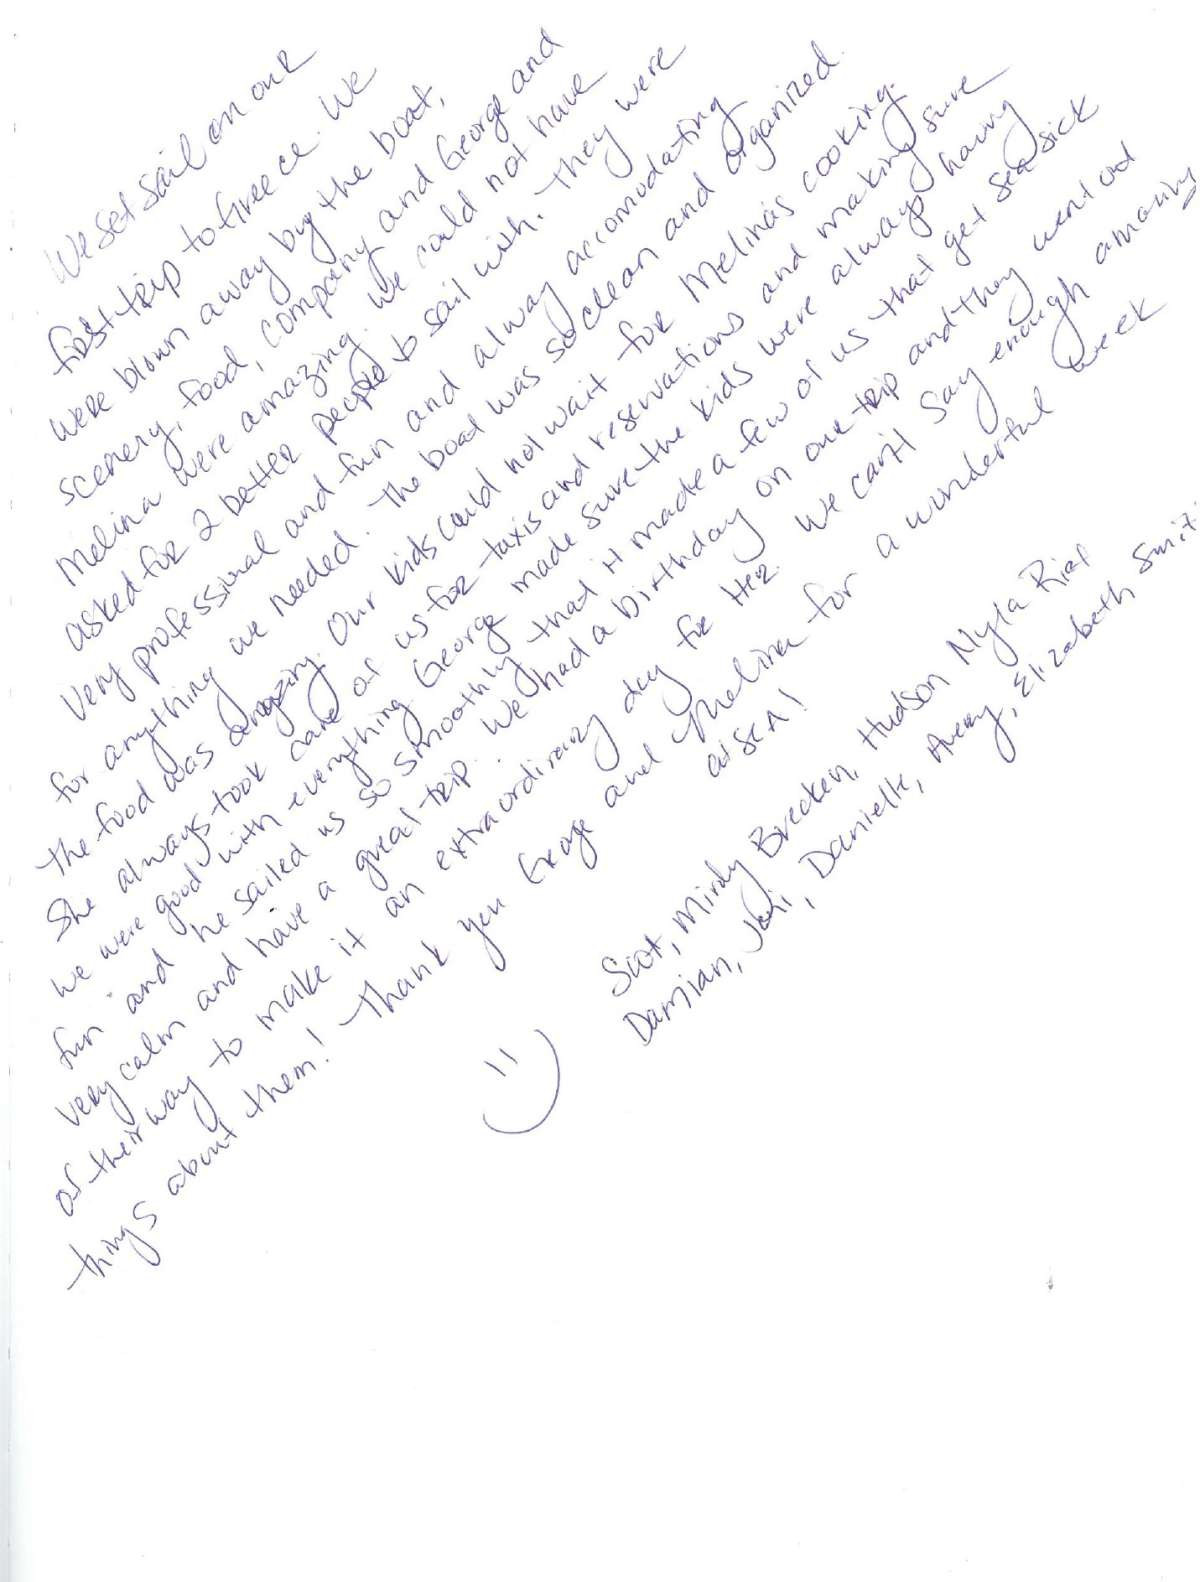 We set sail on our
first trip to Greece. We
were blown away by the boat,
scenery, food, company and George and
Melina were amazing. We could not have
asked for 2 better people to sail with. They were
very professional and fun and always accomodating
for anything we needed. The boat was so clean and organized.
The food was amazing. Our kids could not wait for Melina's cooking.
She always took care of us for taxis and reservations and making sure
we were good with everything. George made sure the kids were always having
fun and he sailed us so smoothly that it made a few of us that get sea sick
very calm and have a great trip. We had a birthday on our trip and they went out
of their way to make it an extraordinary day for Her. We can't say enough amazing
things about them! Thank you George and Melina for a wonderful week
at SEA!
Scot, Mindy Brecken, Hudson Nyla Rief
Damian, Joni, Danielle, Avery, Elizabeth Smit.